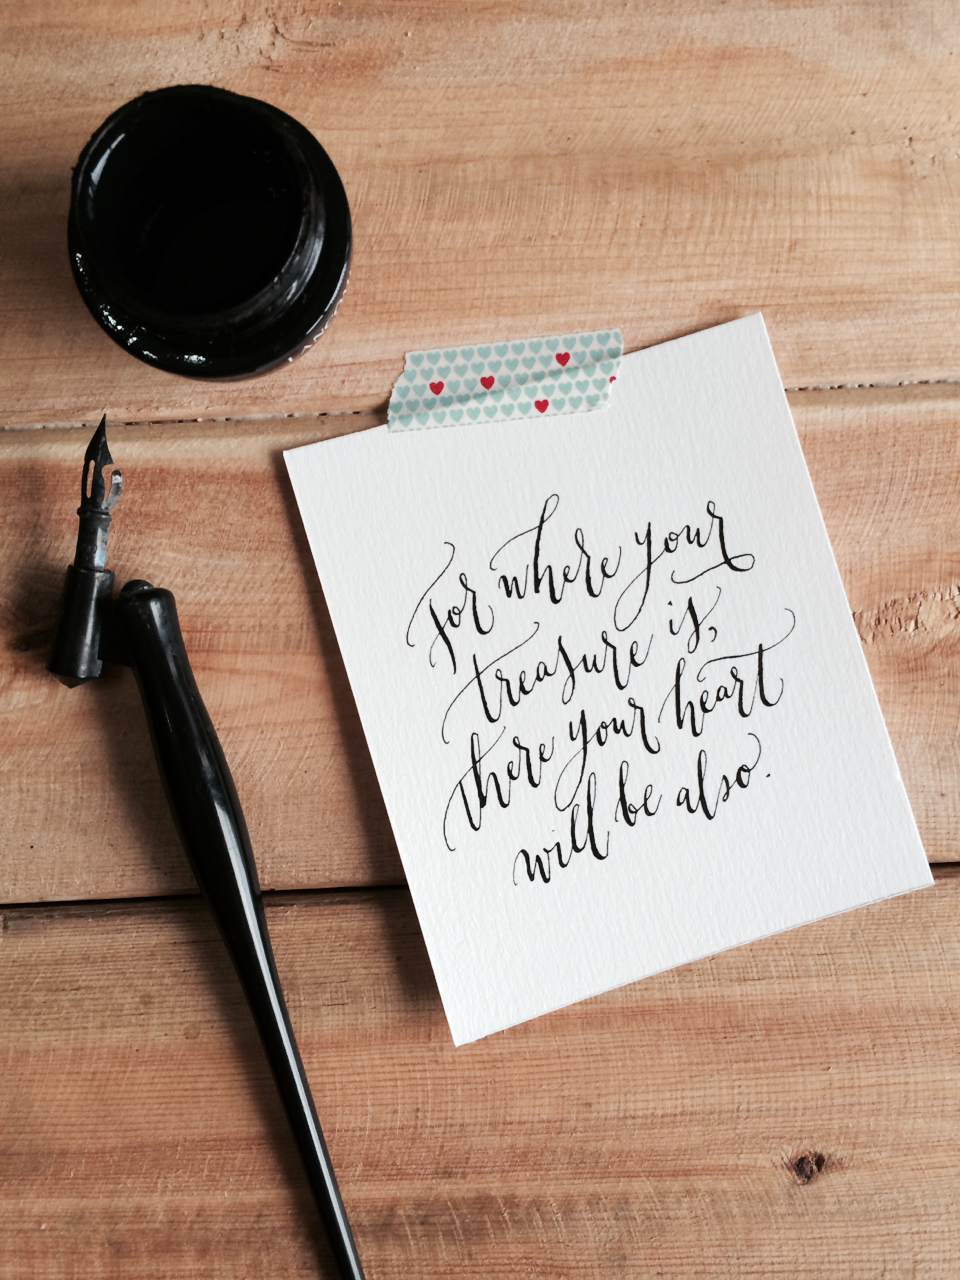 For where your
treasure is,
there your heart
will be also.